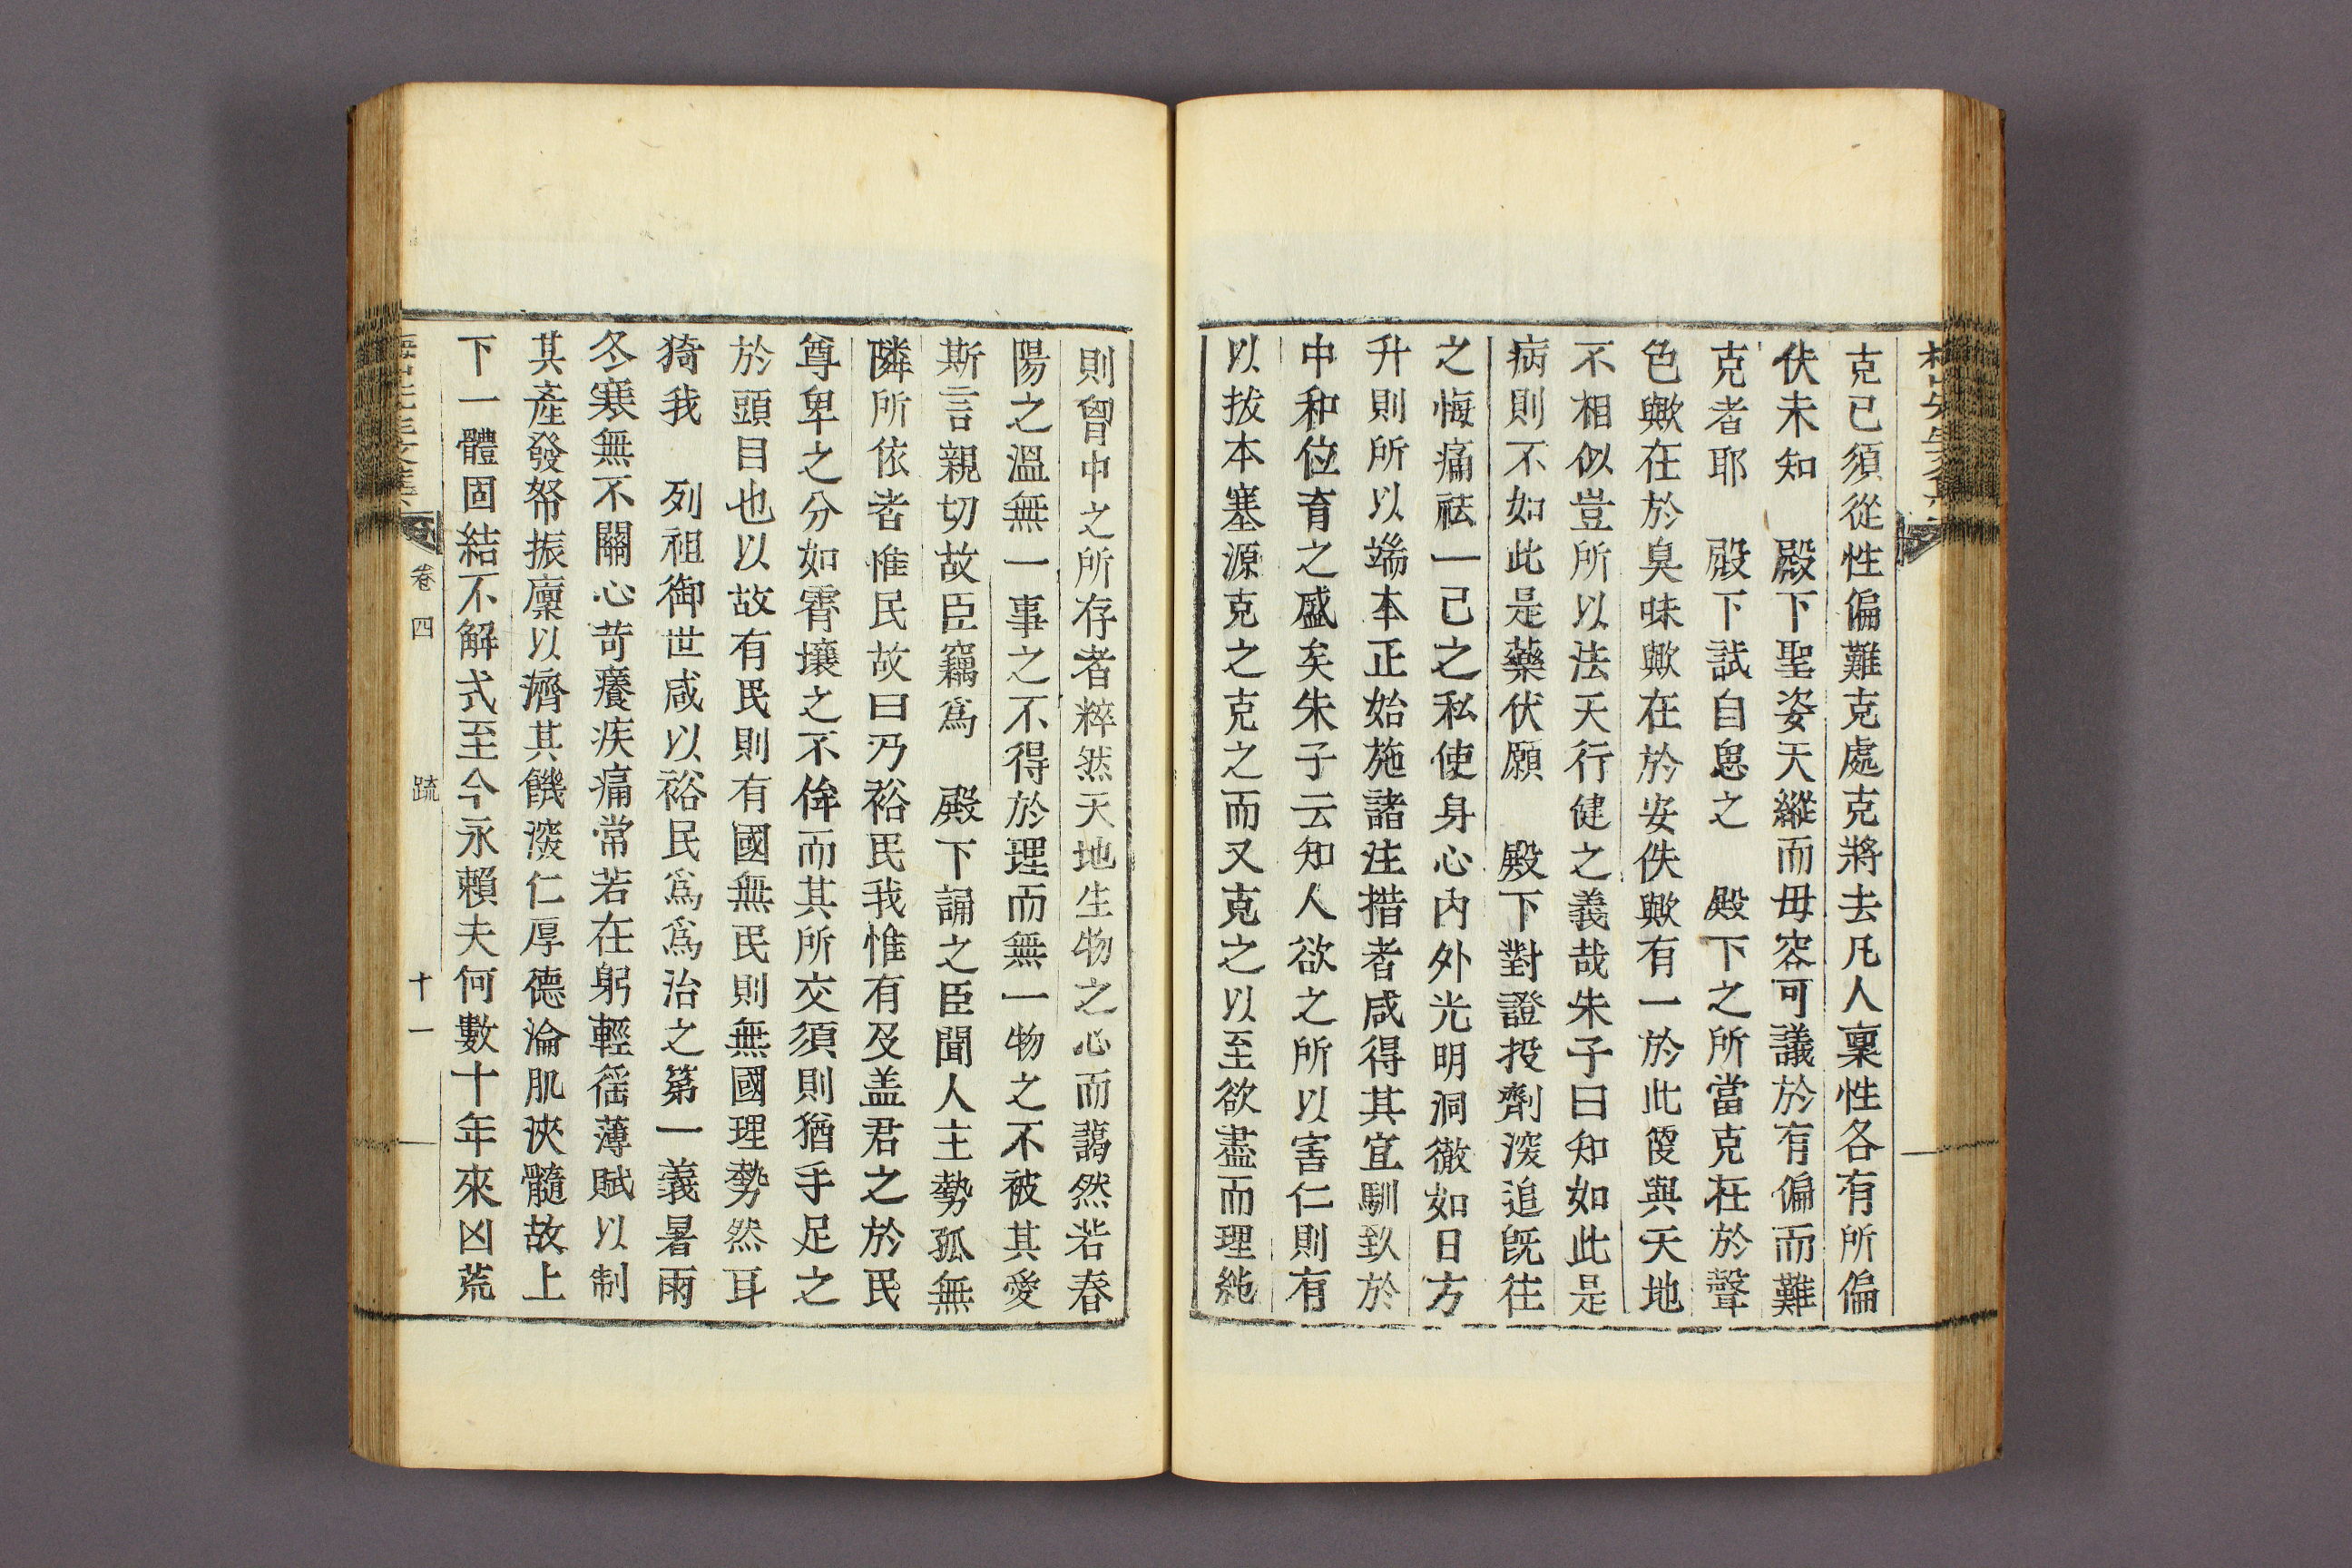 克己須從性偏難克處克將去凡人稟性各有所偏
伏未知　殿下聖姿天縱而毋容可議於有偏而難
克者耶　殿下試自思之　殿下之所當克在於聲
色歟在於臭味歟在於安佚歟有一於此便與天地
不相似豈所以法天行健之義哉朱子曰知如此是
病則不如此是藥伏願　殿下對證投劑深追旣往
之悔痛祛一己之私使身心內外光明洞徹如日方
升則所以端本正始施諸注措者咸得其宜馴致於
中和位育之盛矣朱子云知人欲之所以害仁則有
以拔本塞源克之克之而又克之以至欲盡而理純
則曾中之所存者粹然天地生物之心而藹然若春
陽之溫無一事之不得於理而無一物之不被其愛
斯言親切故臣竊爲　殿下誦之臣聞人主勢孤無
隣所依者惟民故曰乃裕民我惟有及盖君之於民
尊卑之分如霄壤之不侔而其所交須則猶手足之
於頭目也以故有民則有國無民則無國理勢然耳
猗我　列祖御世咸以裕民爲爲治之第一義暑雨
冬寒無不關心苛癢疾痛常若在躬輕徭薄賦以制
其產發帑振廩以濟其饑深仁厚德淪肌浹髓故上
下一體固結不解式至今永賴夫何數十年來凶荒
卷四　疏　十一